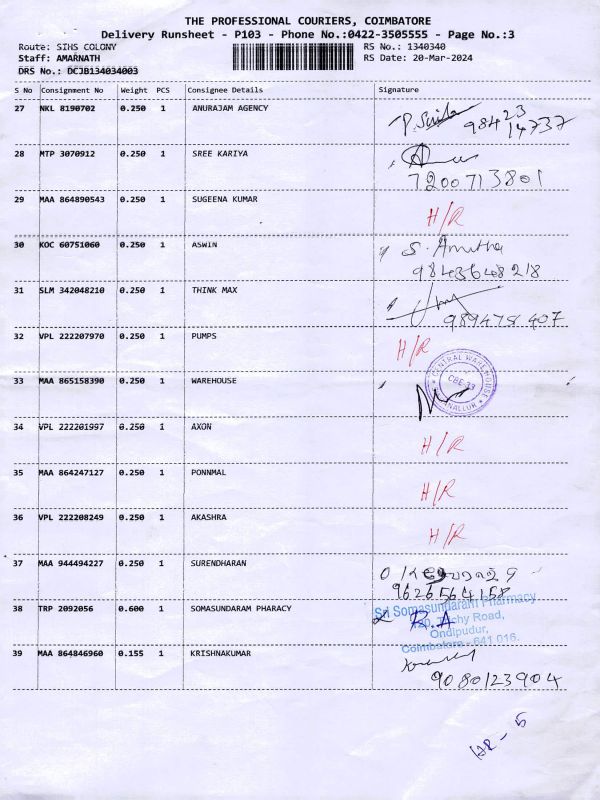 THE PROFESSIONAL COURIERS, COIMBATORE
Delivery Runsheet - P103 - Phone No.:0422-3505555 - Page No.:3
Route: SIHS COLONY RS No.: 1340340
Staff: AMARNATH RS Date: 20-Mar-2024
DRS No.: DCJB134034003
S No Consignment No Weight PCS Consignee Details Signature
27 NKL 8190702 0.250 1 ANURAJAM AGENCY
98423
14737
28 MTP 3070912 0.250 1 SREE KARIYA
7200713801
29 MAA 864890543 0.250 1 SUGEENA KUMAR H/R
30 KOC 60751060 0.250 1 ASWIN S. Anutha
9843648218
31 SLM 342048210 0.250 1 THINK MAX
9894751407
32 VPL 222207970 0.250 1 PUMPS H/R
33 MAA 865158390 0.250 1 WAREHOUSE CENTRAL WAREHOUSE
34 VPL 222201997 0.250 1 AXON H/R
35 MAA 864247127 0.250 1 PONNMAL H/R
36 VPL 222208249 0.250 1 AKASHRA H/R
37 MAA 944494227 0.250 1 SURENDHARAN
9626564158
38 TRP 2092056 0.600 1 SOMASUNDARAM PHARACY Sri Somasundaram Pharmacy
R.A Trichy Road,
Ondipudur,
Coimbatore - 641 016.
39 MAA 864846960 0.155 1 KRISHNAKUMAR
9080123904